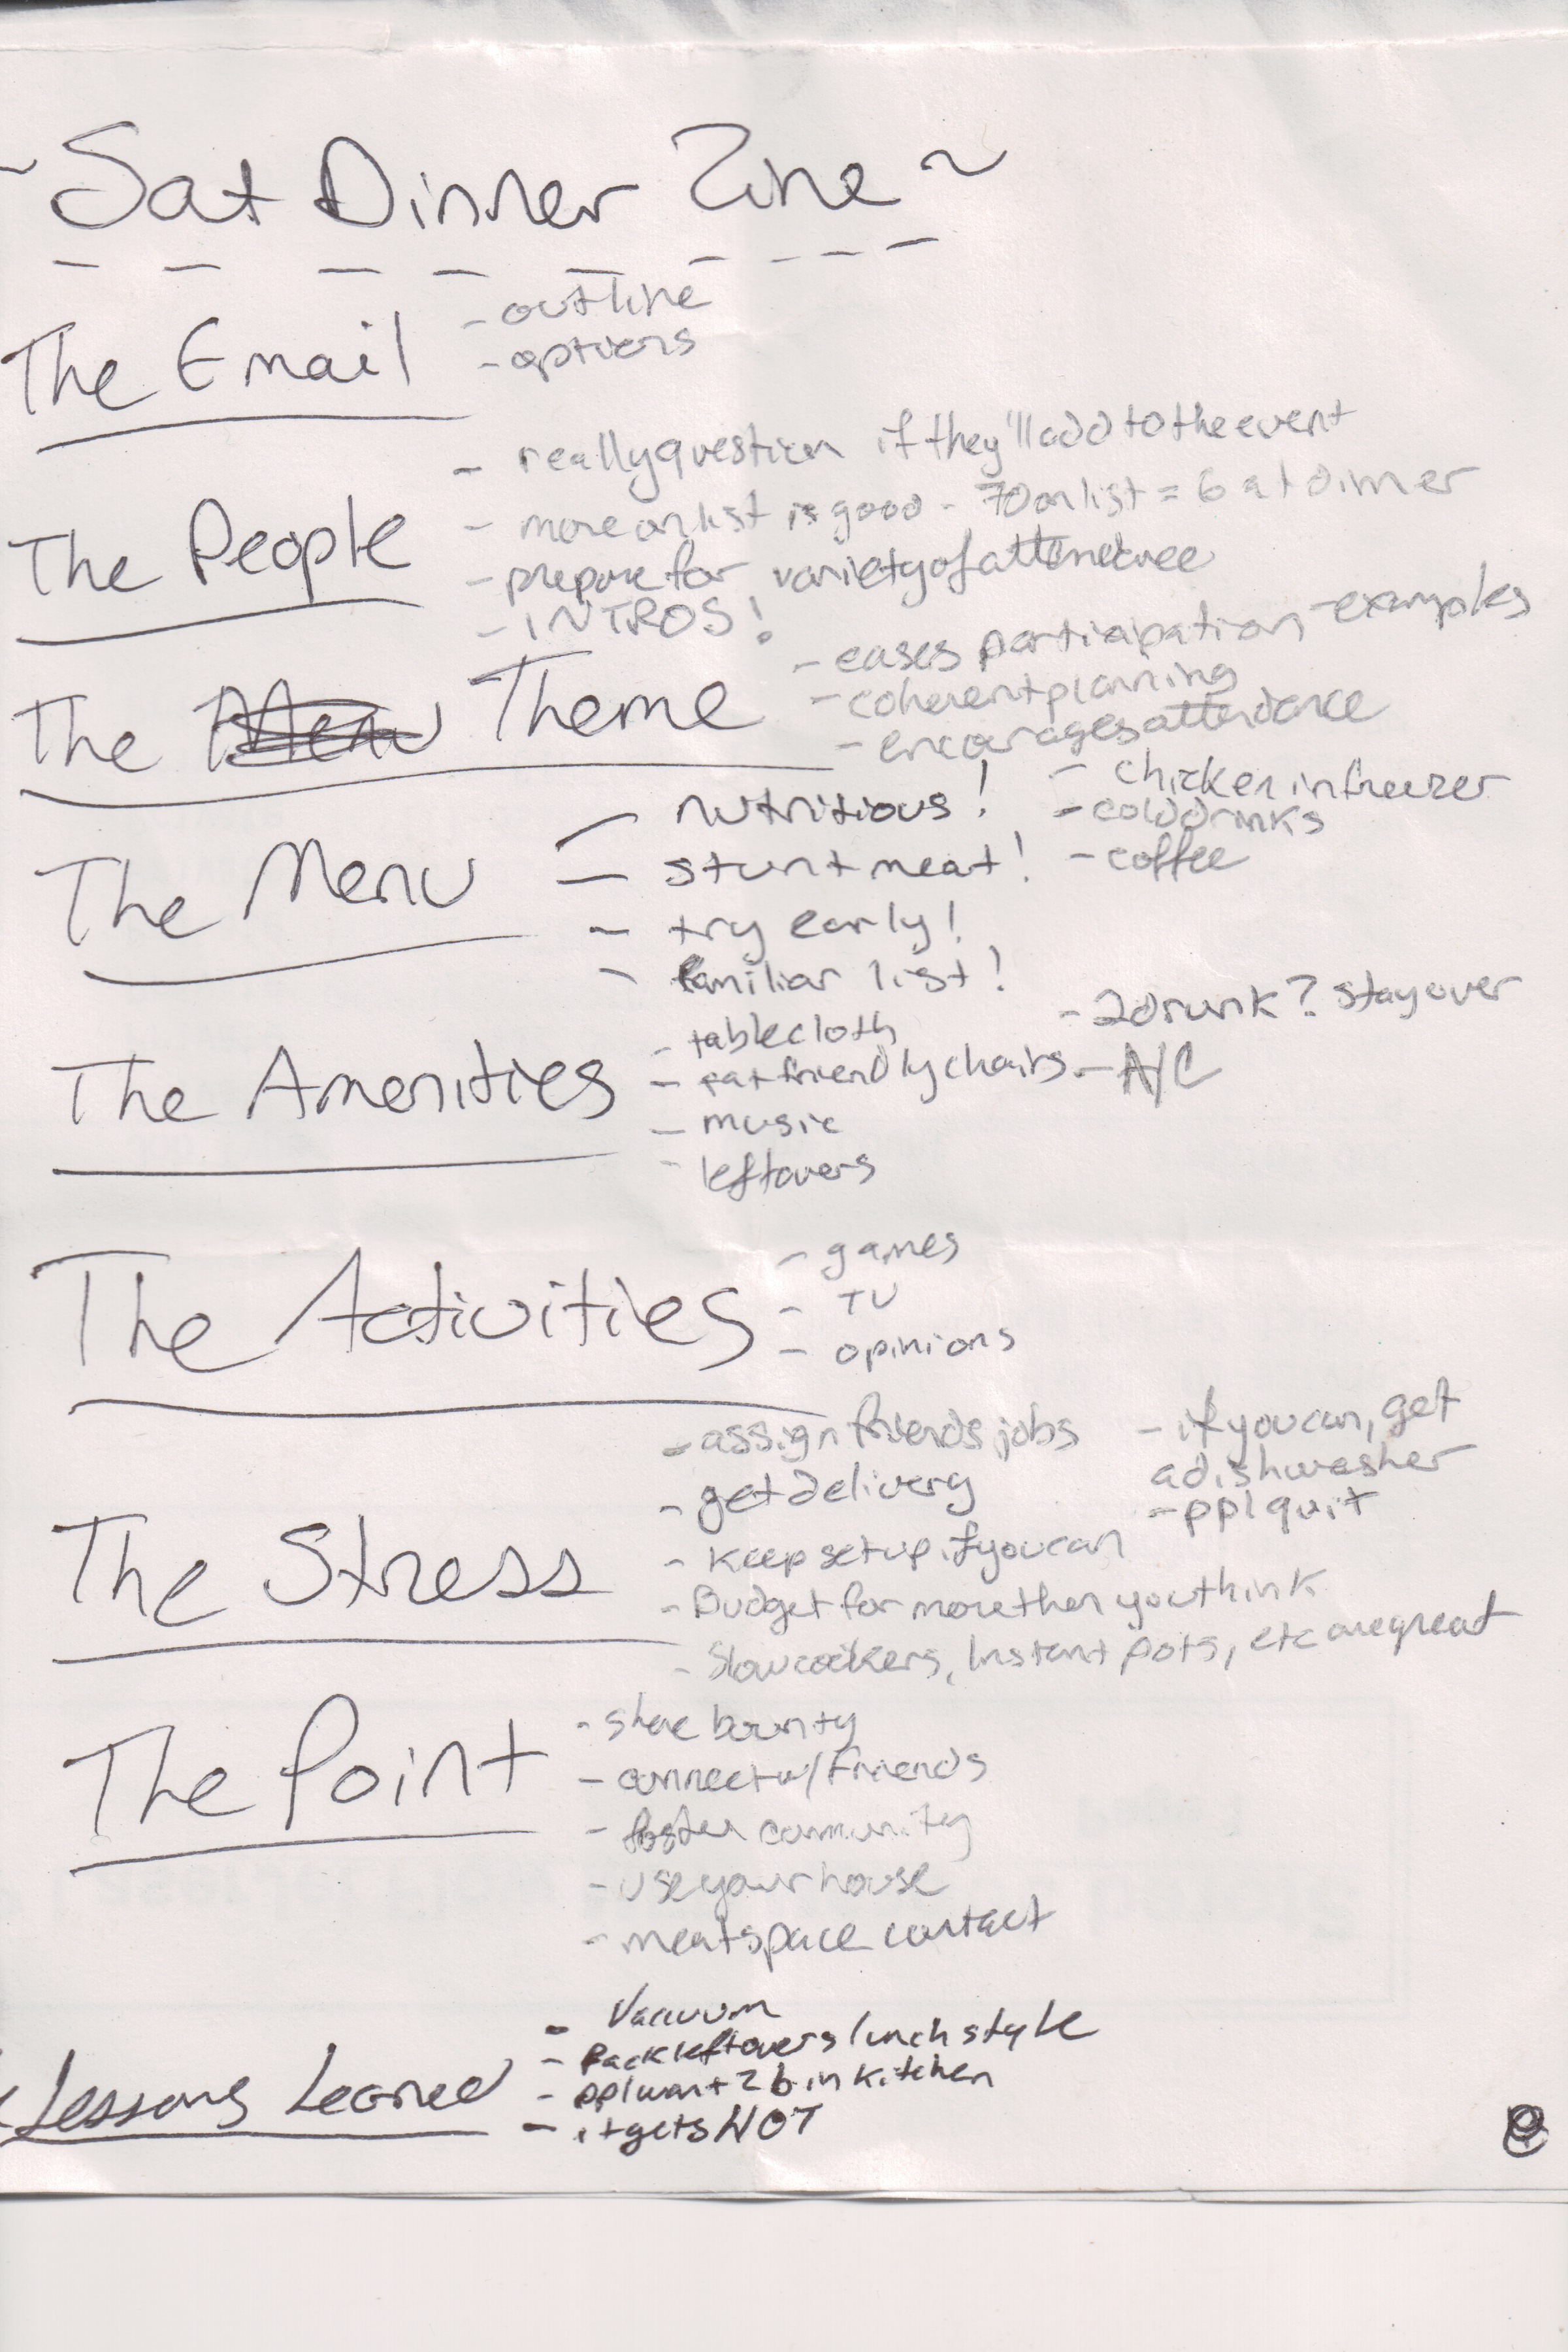 ~ Sat Dinner Zine ~
The Email
- outline
- options
The People
- really question if they'll add to the event
- more on list is good - 70 on list = 6 at dinner
- prepare for variety of attendee
- INTROS!
The Menu Theme
- eases participation - examples
- coherent planning
- encourages attendance
The Menu
- nutritious!
- stunt meat!
- try early!
- familiar list!
- chicken in freezer
- cold drinks
- coffee
The Amenities
- tablecloth
- fat friendly chairs
- music
- leftovers
- 2 drunk? stay over
- A/C
The Activities
- games
- TV
- opinions
The Stress
- assign friends jobs
- get delivery
- keep setup if you can
- Budget for more then you think
- Slow cookers, Instant pots, etc are great
- if you can, get
a dishwasher
- ppl quit
The Point
- share bounty
- connect w/ friends
- foster community
- use your house
- meatspace contact
Lessons Learned
- Vacuum
- Pack leftovers lunch style
- ppl want 2 b in kitchen
- it gets HOT